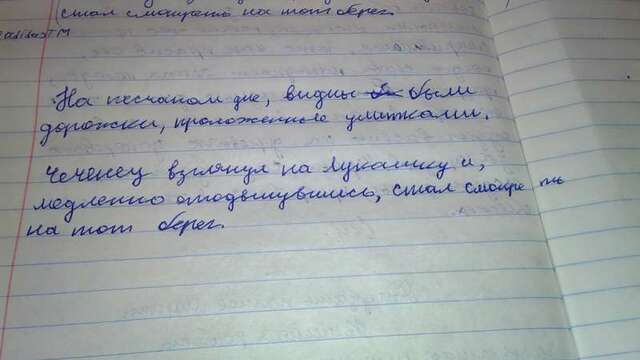 стал смотреть на тот берег.
adidasTM
На песчаном дне, видны были
дорожки, проложенные улитками.
Чеченец взглянул на Лукашку и,
медленно отодвинувшись, стал смотреть
на тот берег.